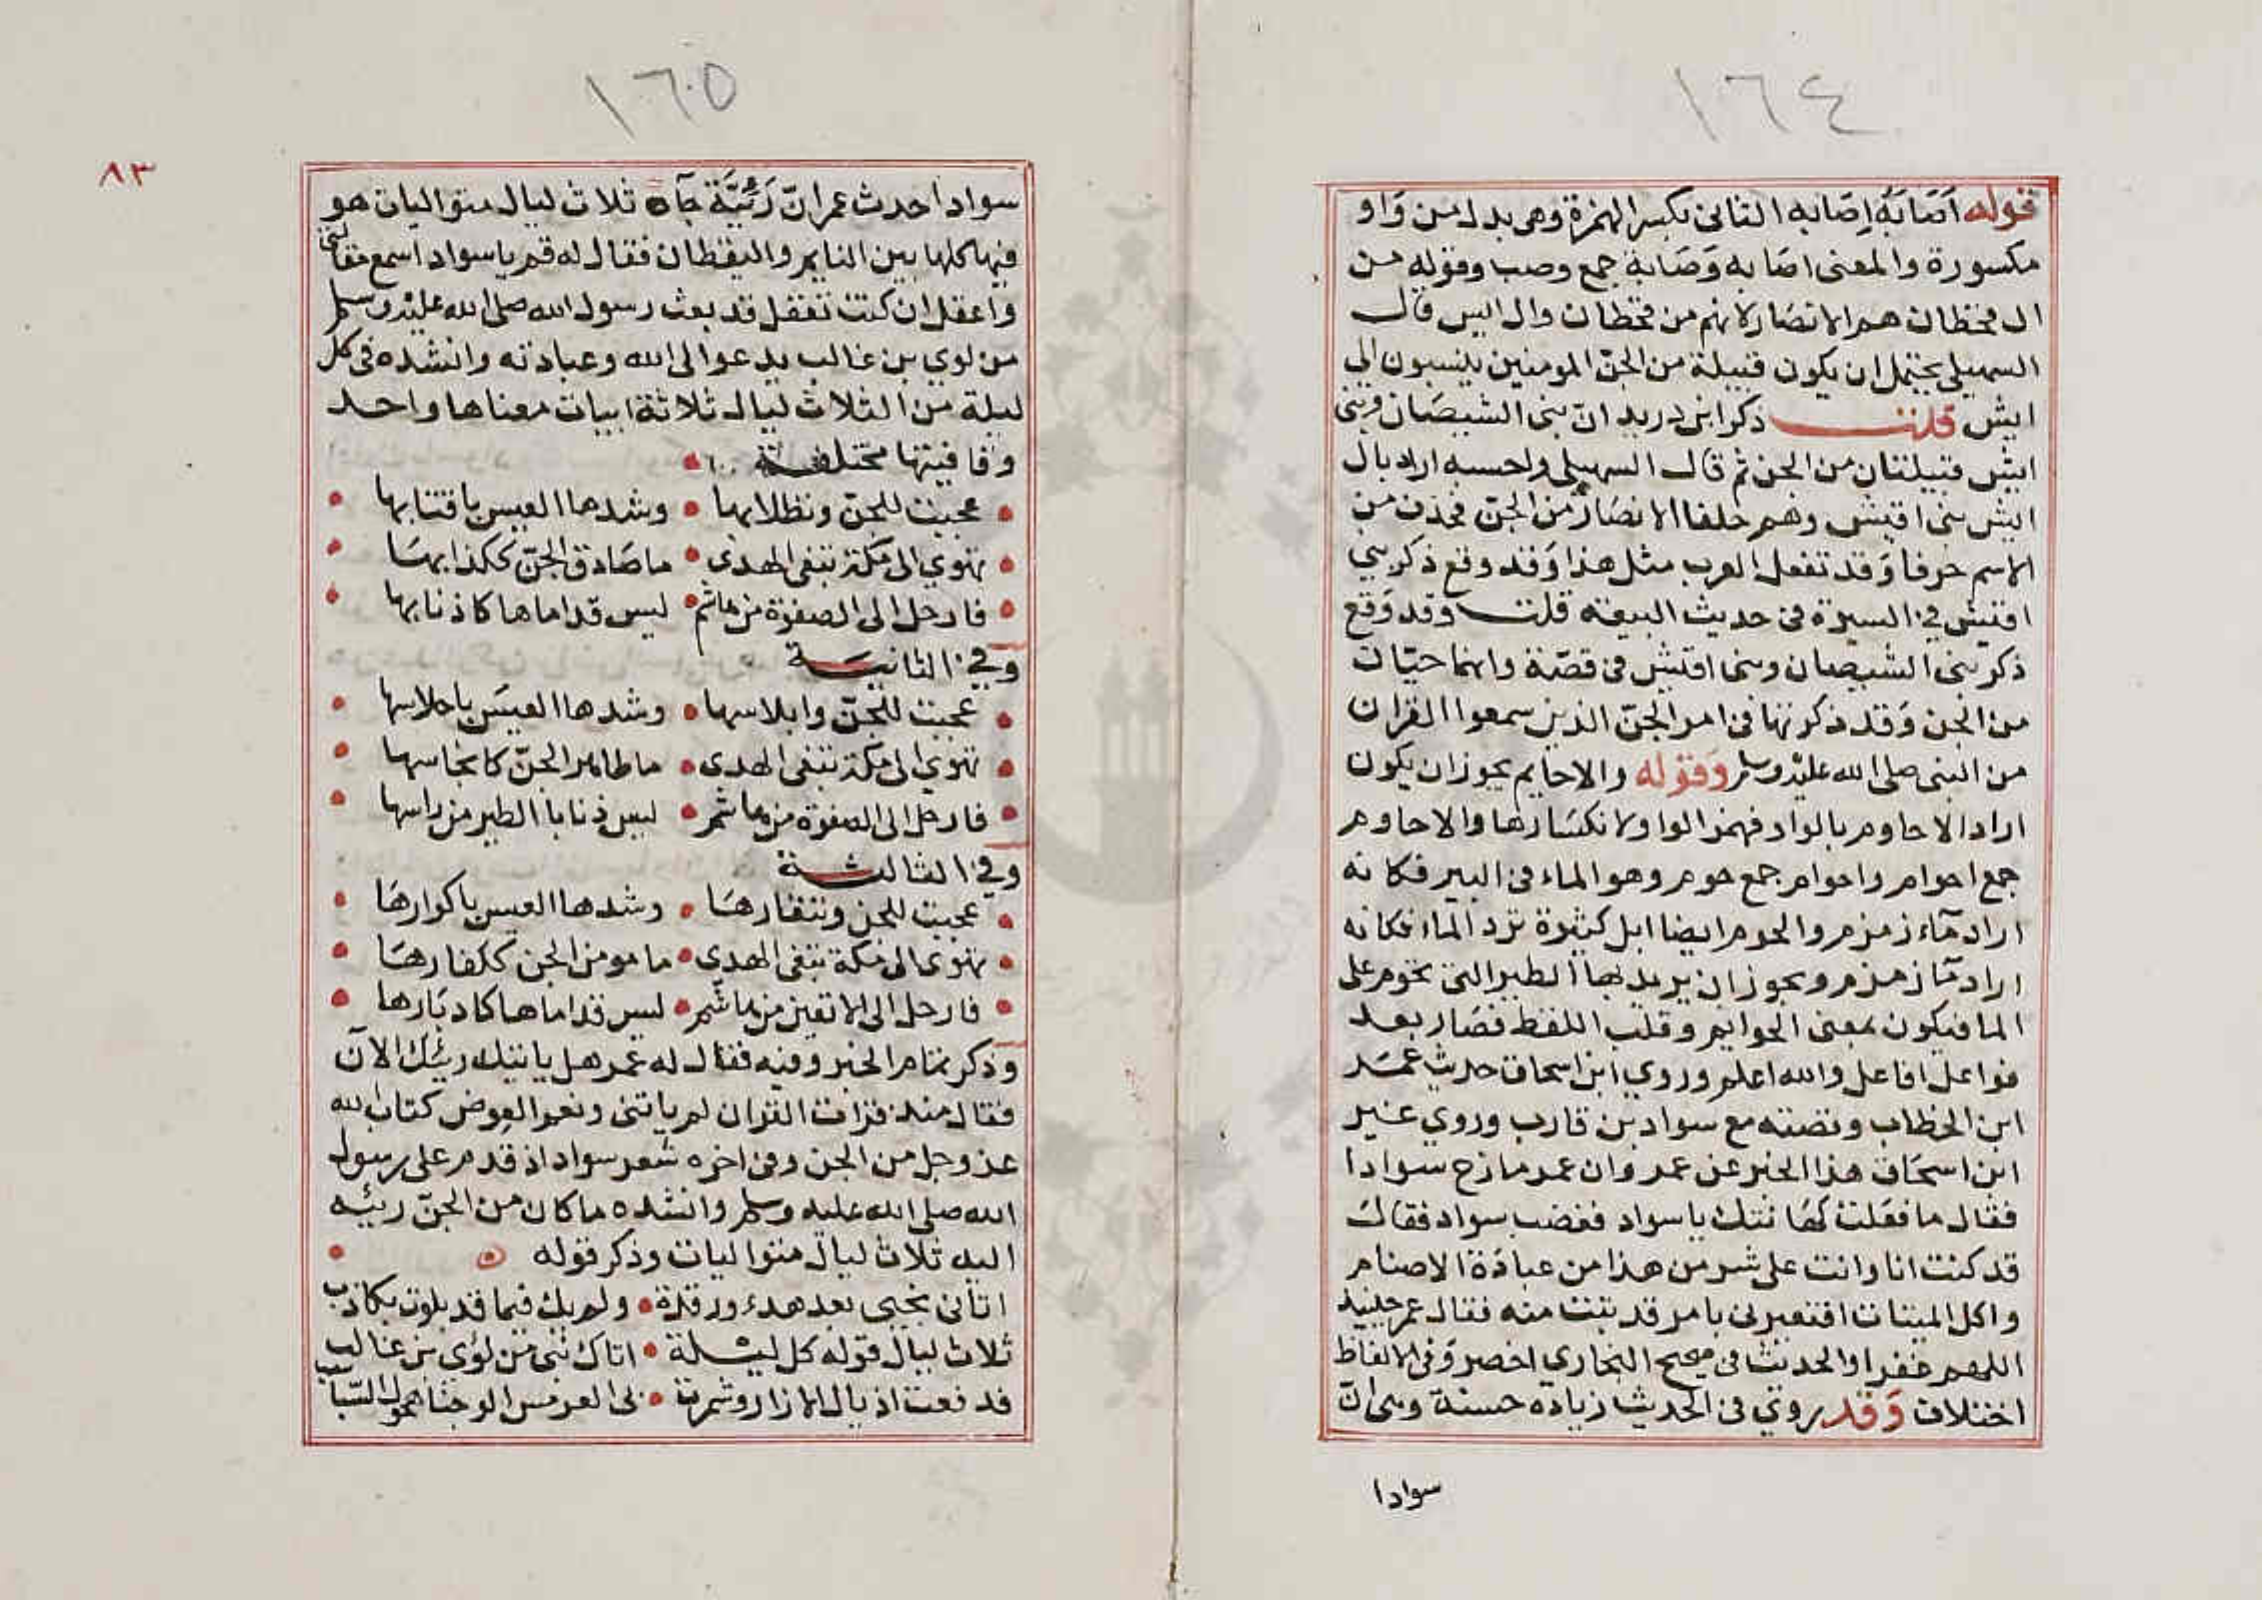 ١٦٤
قوله اصَابَهُ اِصَابه الثانى بكسر الهمزة وهى بدل من وَاو
مكسورة والمعنى اصَابه وَصَابة جمع وصب وقوله من
ال قحطان هم الانصَار لانهم من قحطان وال ايس قال
السهيلى يحتمل ان يكون قبيلة من الجنّ المومنين ينسبون الى
ايش قلت ذكر ابن دريد انّ بنى الشيصَان وبنى
ايش قبيلتان من الجن ثم قال السهيلى واحسبه اراد بال
ايش بنى اقيش وهم حلفا الانصَار من الجنّ فحذف من
الاسم حرفا وَقد تفعل العرب مثل هذا وَقد وقع ذكر بني
اقيش في السيرة فى حديث البيعه قلت وقد وَقع
ذكر بنى الشيصبان وبنى اقيش فى قصّة وانهما حيّان
من الجن وَقد ذكرتها فى امر الجنّ الذين سمعوا القران
من النبى صلى الله عليه وسلم وَقوله والاحايم يجوز ان يكون
اراد الاحاوم بالواو فهمز الواو لانكسَارها والاحاوم
جمع احوام واحوام جمع حوم وهو الماء فى البير فكانه
اراد مَآء زمزم والحوم ايضا ابل كثيرة ترد الماء فكانه
اراد مَا زمزم ويجوز ان يريد بها الطير التى تحوم على
الما فيكون بمعنى الحوايم وقلب اللفظ فصَار بعد
فواعل افاعل والله اعلم وروي ابن اسحاق حديث عمَر
ابن الخطاب وقصته مع سواد بن قارب وروي غير
ابن اسحَاق هذا الخبر عن عمر وان عمر مازح سوادا
فقال ما فعَلت كهَانتك ياسواد فغضب سواد فقال
قد كنت انا وانت على شر من هذا من عبادَة الاصنام
واكل الميتات افتعيرنى بامر قد تبت منه فقال عمر حينيد
اللهم غفرا والحديث فى صحيح البخاري اخصر وَفى الالفاظ
اختلاف وَقد روي فى الحديث زيادة حسنة وهى انّ
سوادا
١٦٥
٨٣
سوادا حدث عمر انّ رَئِيَّة جآه ثلاث ليال متواليات هو
فيها كلها بين النايم واليقظان فقال له قم ياسواد اسمع مقالتى
واعقل ان كنت تعقل قد بعث رسول الله صلى الله عليه وسلم
من لوي بن غالب يدعوا الى الله وعبادته وانشده فى كل
ليلة من الثلاث ليال ثلاثة ابيات معناها واحد
وقافيتها مختلفة
عجبت للجنّ وتطلابها • وشدها العيس باقتابها
تهوي الى مكة تبغى الهدى • ما صَادق الجنّ ككذابهَا
فارحل الى الصفوة من هاشم • ليس قداماها كاذنابها
وفي الثانية
عجبت للجنّ وابلاسها • وشدها العيسَ باحلاسها
تهوي الى مكة تبغى الهدى • ما طاهر الجنّ كانجاسها
فارحل الى الصفوة من هاشم • ليس ذنابا الطير من راسها
وفي الثالثة
عجبت للجن وتنفارهَا • وشدها العيس باكوارهَا
تهوى الى مكة تبغى الهدى • ما مومن الجن ككفارهَا
فارحل الى الاتقين من هاشم • ليس قداماها كادبَارها
وذكر تمام الخبر وفيه فقال له عمر هل ياتيك رئيك الآن
فقال منذ قرات القران لم ياتنى ونعم العِوض كتاب الله
عز وجل من الجن وفى اخره شعر سواد اذ قدم على رسول
الله صلى الله عليه وسلم وانشده ما كان من الجنّ رئيه
اليه ثلاث ليال متواليات وذكر قوله ه
اتانى نجيى بعد هدء ورقدة • ولم يك فيما قد بلوت بكاذب
ثلاث ليال قوله كل ليلة • اتاك نبى من لؤي بن غالب
فرفعت اذيال الازار وشمرت • بى العرمس الوجنا هجول السّباسب